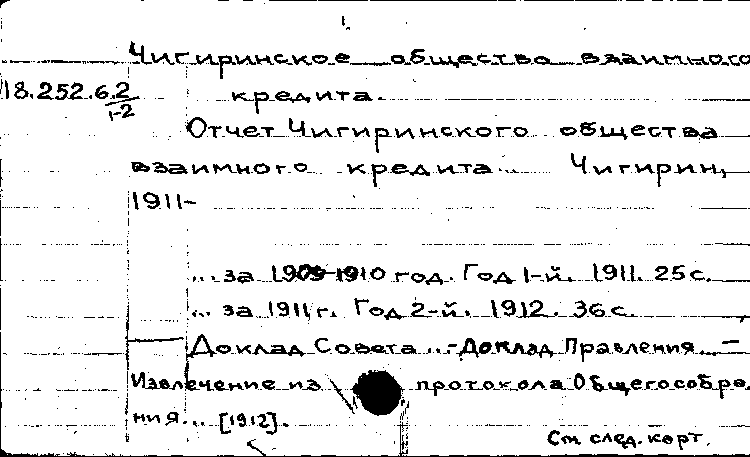 1.
Чигиринское общество взаимного
18.252.6.2 кредита.
1-2
Отчет Чигиринского общества
взаимного кредита... Чигирин,
1911-
... за 1909-1910 год. Год 1-й. 1911. 25 с.
... за 1911 г. Год 2-й. 1912. 36 с.
Доклад Совета...-Доклад Правления... -
Извлечение из протокола Общего собра
ния... [1912].
См след. карт.